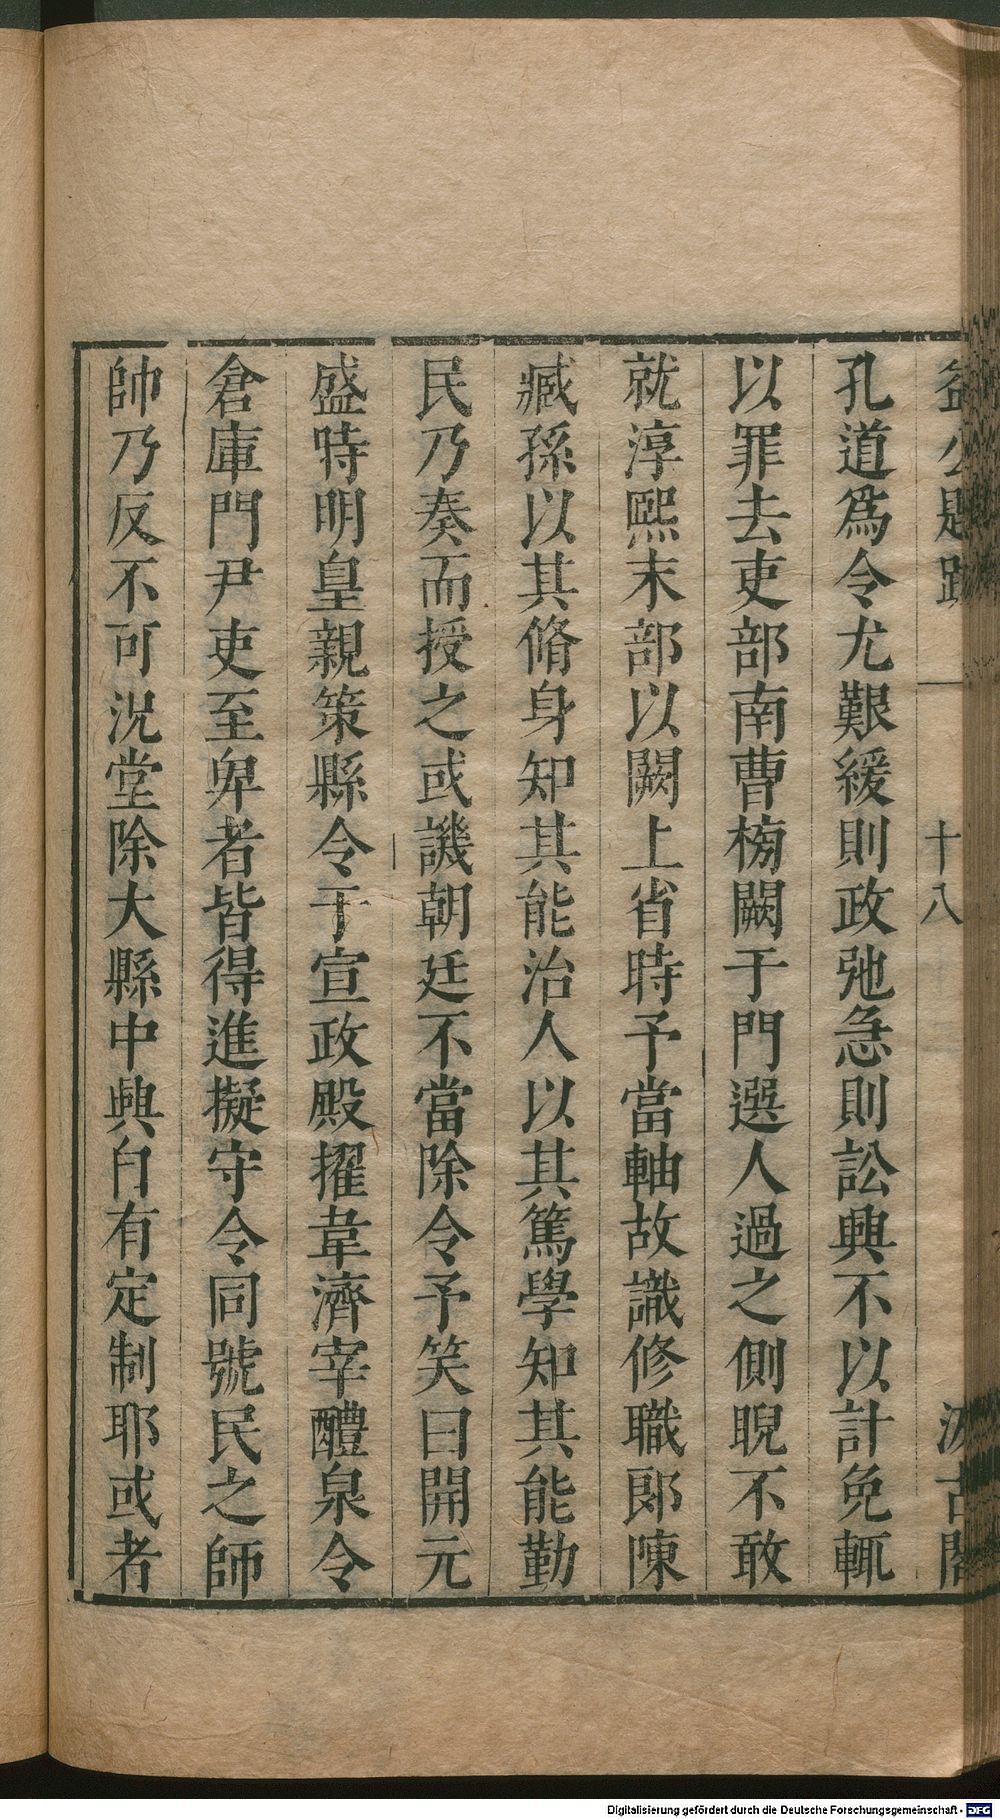 益公題跋 十八 汲古閣
孔道爲令尤艱緩則政弛急則訟興不以計免輒
以罪去吏部南曹榜闕于門選人過之側睨不敢
就淳熙末部以闕上省時予當軸故識修職郎陳
臧孫以其脩身知其能治人以其篤學知其能勤
民乃奏而授之或譏朝廷不當除令予笑曰開元
盛時明皇親策縣令于宣政殿擢韋濟宰醴泉令
倉庫門尹吏至卑者皆得進擬守令同號民之師
帥乃反不可況堂除大縣中興自有定制耶或者
Digitalisierung gefördert durch die Deutsche Forschungsgemeinschaft - DFG